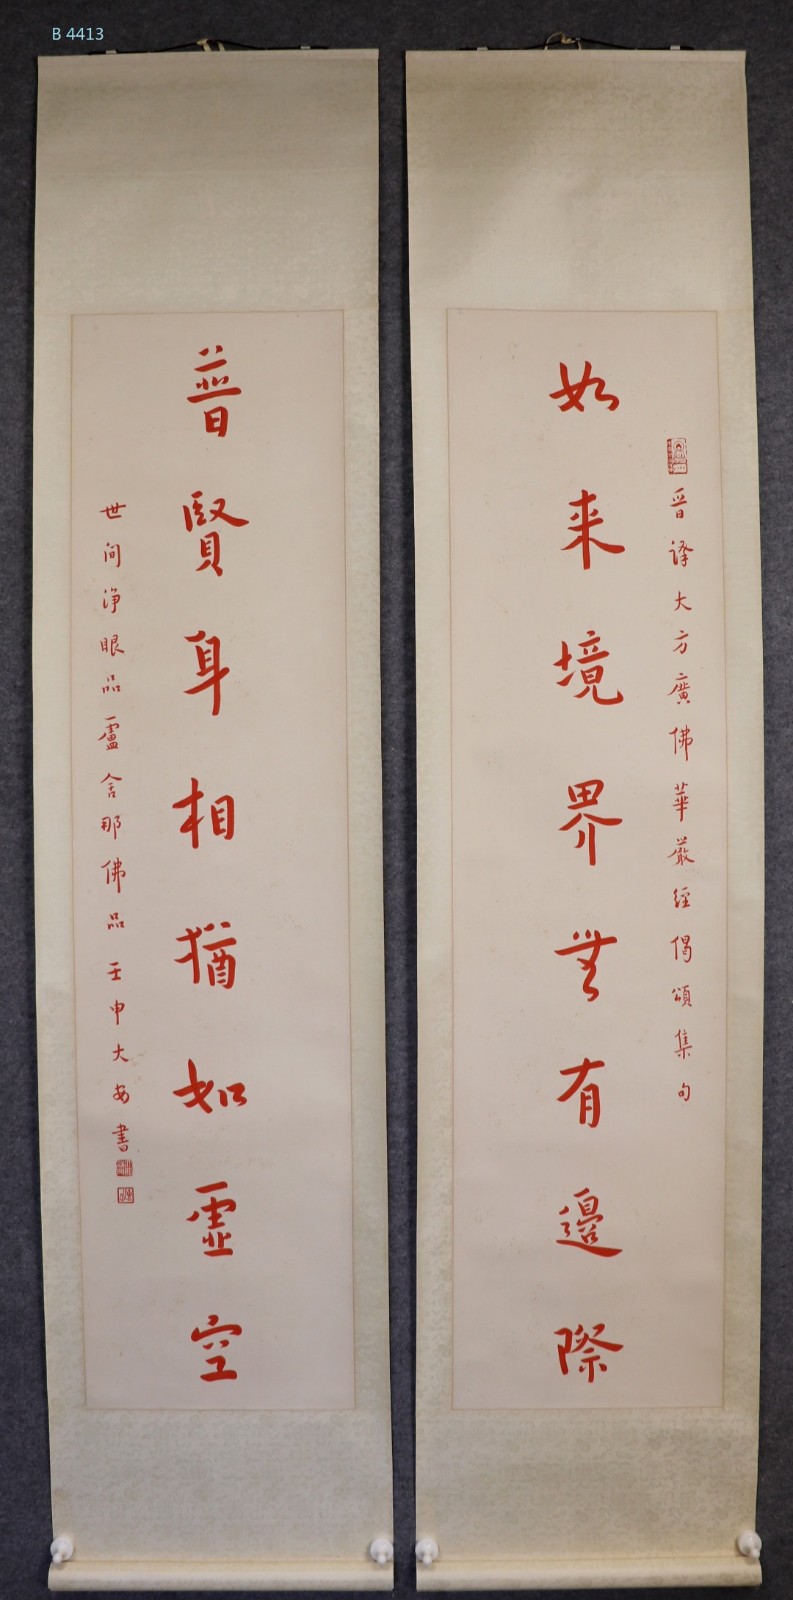 B 4413
晉譯大方廣佛華嚴經偈頌集句
如来境界無有邊際
普賢身相猶如虛空
世间淨眼品盧舍那佛品 壬申大安書